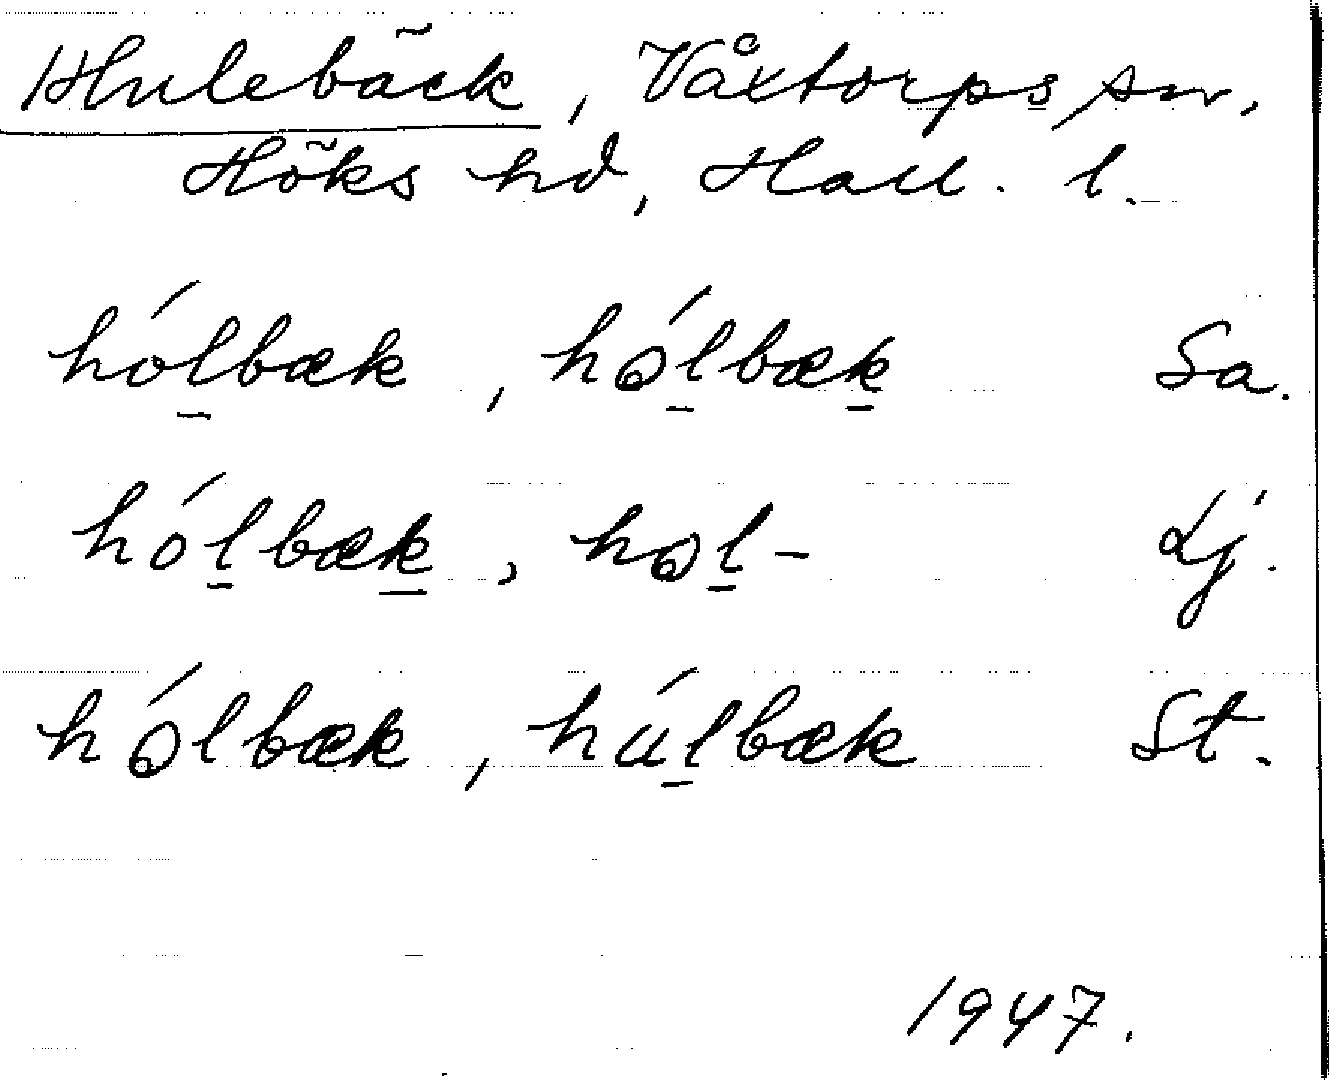 Hulebäck, Våxtorps sn,
Höks hd, Hall. l.
hólbæk, hólbæk Sa.
hólbæk, hol- Lj.
hólbæk, húlbæk St.
1947.